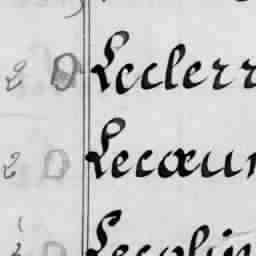 2 D Leclerr
2 D Lecœur
Lecolin